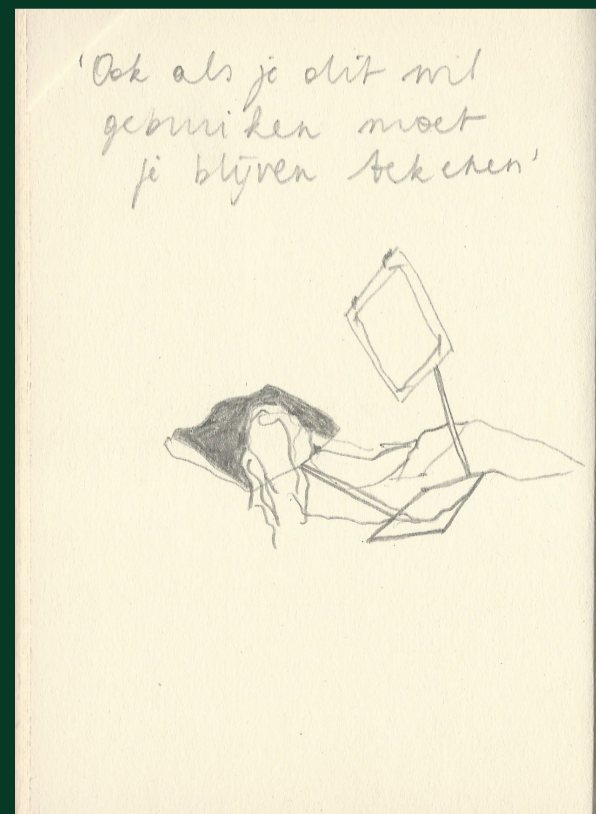 'Ook als je dit wil
gebruiken moet
je blijven tekenen'